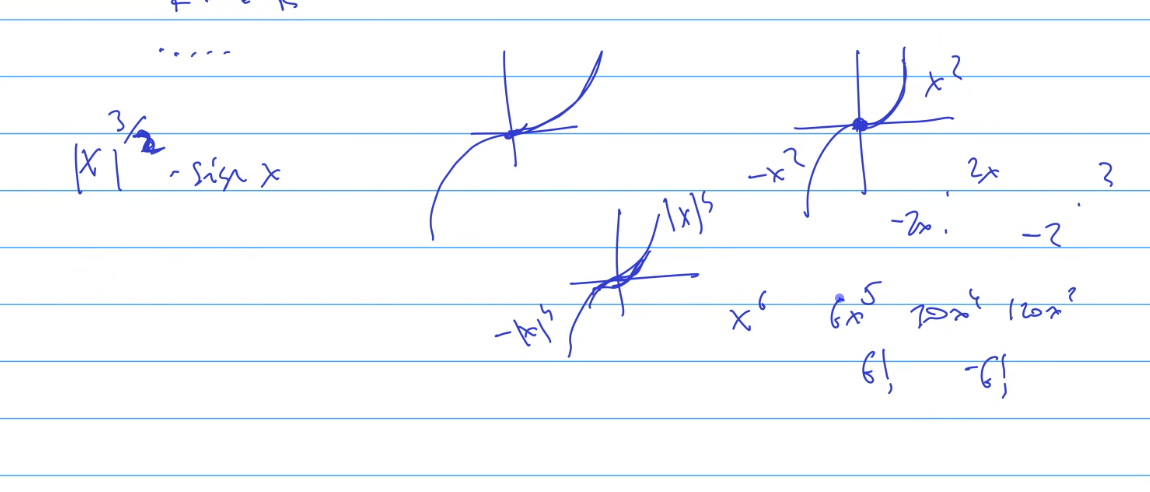 .....
|x|^{3/2} · sign x
x^2
-x^2
2x 2
-2x -2
|x|^5
-|x|^5
x^6 6x^5 30x^4 120x^3
6! -6!